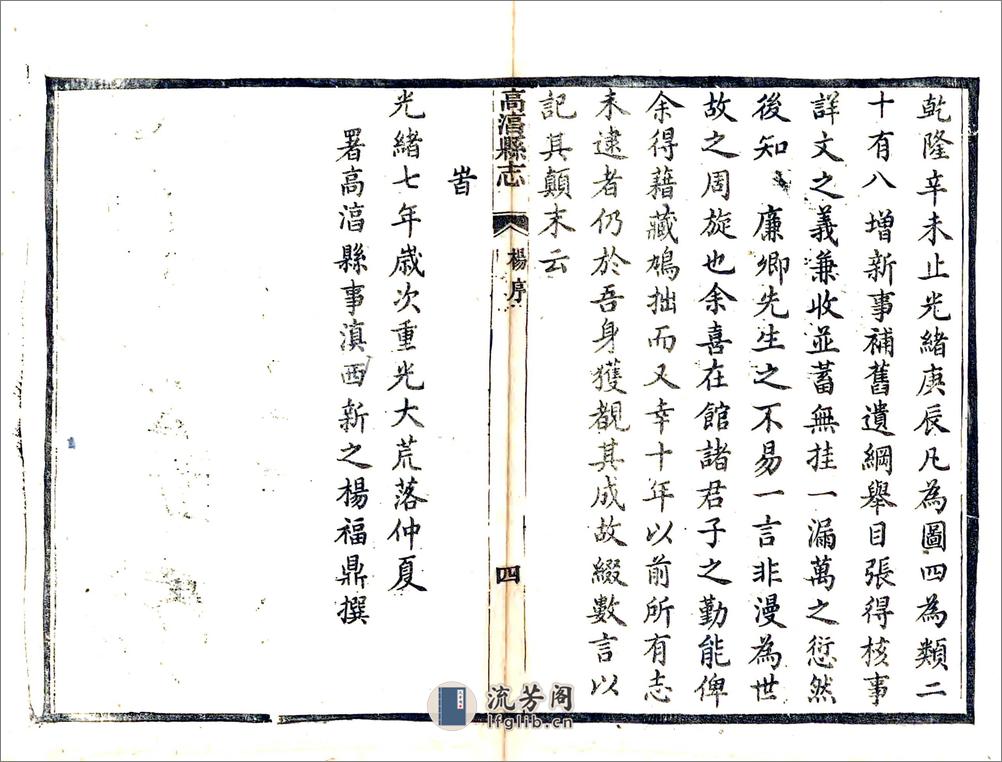 乾隆辛未止光緒庚辰凡為圖四為類二
十有八增新事補舊遺綱舉目張得核事
詳文之義兼收並蓄無挂一漏萬之愆然
後知 廉卿先生之不易一言非漫為世
故之周旋也余喜在館諸君子之勤能俾
余得藉藏鳩拙而又幸十年以前所有志
未逮者仍於吾身獲覩其成故綴數言以
記其顛末云
高湻縣志
楊序
四
旹
光緒七年歲次重光大荒落仲夏
署高湻縣事滇西新之楊福鼎撰
流芳阁
lfglib.cn